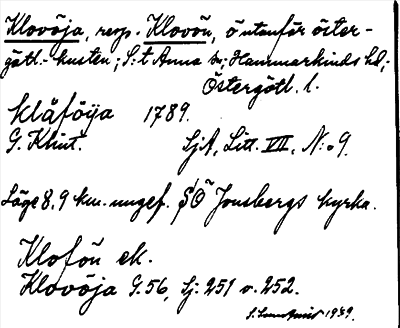 Klovöja, resp. Klovön, ö utanför öster-
götl.-kusten; S:t Anna sn; Hammarkinds hd;
Östergötl. l.
Klåföija 1789.
G. Klint. SjA, Litt. VII, N:o 9.
Läge 8,9 km. ungef. SÖ Jonsbergs kyrka.
Klofön ek.
Klovöja G. 56, Sj: 251 o. 252.
1939.